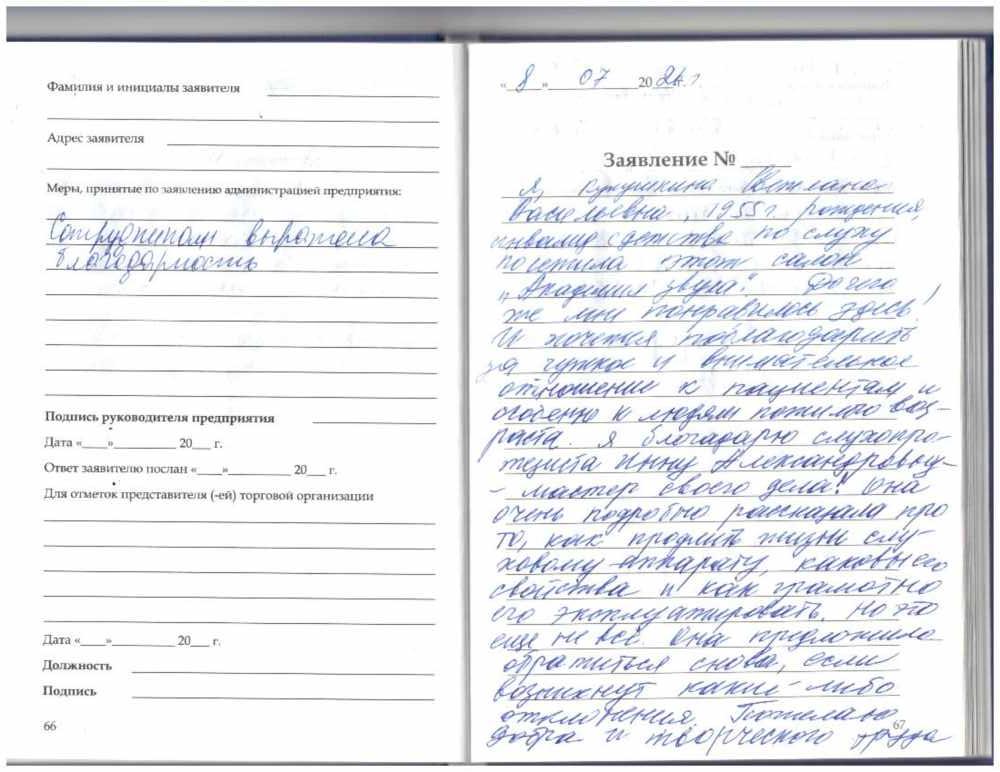 Фамилия и инициалы заявителя
Адрес заявителя
Меры, принятые по заявлению администрацией предприятия:
Сотрудникам выражена
благодарность
Подпись руководителя предприятия
Дата «____»__________ 20___ г.
Ответ заявителю послан «____»__________ 20___ г.
Для отметок представителя (-ей) торговой организации
Дата «____»__________ 20___ г.
Должность
Подпись
66
«8» 07 2024 г.
Заявление № _____
Я, Кукушкина Светлана
Васильевна, 1955 г. рождения,
инвалид с детства по слуху
посетила этот салон
"Академия звука". До чего
же мне понравилось здесь!
И хочется поблагодарить
за чуткое и внимательное
отношение к пациентам и
особенно к людям пожилого воз-
раста. Я благодарю слухопро-
тезиста Инну Александровну -
- мастер своего дела! Она
очень подробно рассказала про
то, как продлить жизнь слу-
ховому аппарату, каковы его
свойства и как грамотно
его эксплуатировать. Но это
еще не всё. Она предложила
обратиться снова, если
возникнут какие-либо
отклонения. Пожелаю
добра и творческого труда
67